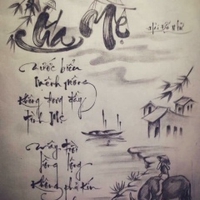 Cha Mẹ
nước biển
mênh mông
không đong đầy
tình Mẹ
mây trời
lồng lộng
không phủ kín